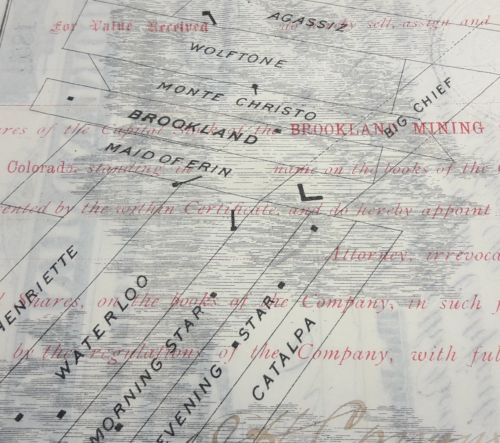 AGASSIZ
For Value Received do hereby sell, assign and
WOLFTONE
MONTE CHRISTO
BIG CHIEF
BROOKLAND
of the Capital Stock of the BROOKLAND MINING
MAID OF ERIN
Colorado, standing in name on the books of the
by the within Certificate, and do hereby appoint
Attorney, irrevoca
HENRIETTE
WATERLOO
Shares, on the books of the Company, in such f
MORNING STAR
EVENING STAR
CATALPA
by the regulations of the Company, with ful